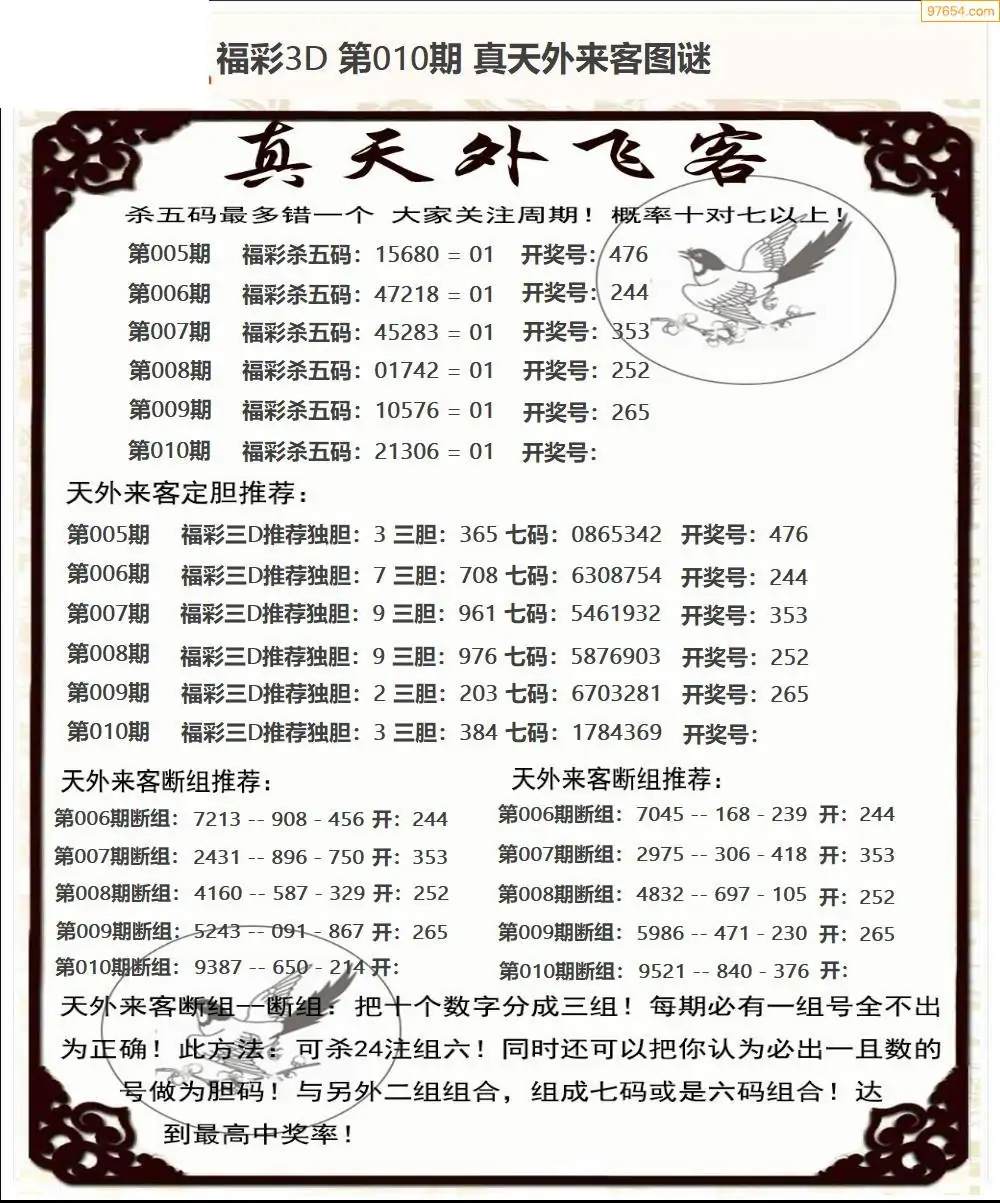 97654.com
福彩3D 第010期 真天外来客图谜
真天外飞客
杀五码最多错一个 大家关注周期！概率十对七以上！
第005期 福彩杀五码：15680 = 01 开奖号：476
第006期 福彩杀五码：47218 = 01 开奖号：244
第007期 福彩杀五码：45283 = 01 开奖号：353
第008期 福彩杀五码：01742 = 01 开奖号：252
第009期 福彩杀五码：10576 = 01 开奖号：265
第010期 福彩杀五码：21306 = 01 开奖号：
天外来客定胆推荐：
第005期 福彩三D推荐独胆：3 三胆：365 七码：0865342 开奖号：476
第006期 福彩三D推荐独胆：7 三胆：708 七码：6308754 开奖号：244
第007期 福彩三D推荐独胆：9 三胆：961 七码：5461932 开奖号：353
第008期 福彩三D推荐独胆：9 三胆：976 七码：5876903 开奖号：252
第009期 福彩三D推荐独胆：2 三胆：203 七码：6703281 开奖号：265
第010期 福彩三D推荐独胆：3 三胆：384 七码：1784369 开奖号：
天外来客断组推荐：
第006期断组：7213 -- 908 - 456 开：244
第007期断组：2431 -- 896 - 750 开：353
第008期断组：4160 -- 587 - 329 开：252
第009期断组：5243 -- 091 - 867 开：265
第010期断组：9387 -- 650 - 214 开：
天外来客断组推荐：
第006期断组：7045 -- 168 - 239 开：244
第007期断组：2975 -- 306 - 418 开：353
第008期断组：4832 -- 697 - 105 开：252
第009期断组：5986 -- 471 - 230 开：265
第010期断组：9521 -- 840 - 376 开：
天外来客断组一断组：把十个数字分成三组！每期必有一组号全不出
为正确！此方法：可杀24注组六！同时还可以把你认为必出一且数的
号做为胆码！与另外二组组合，组成七码或是六码组合！达
到最高中奖率！